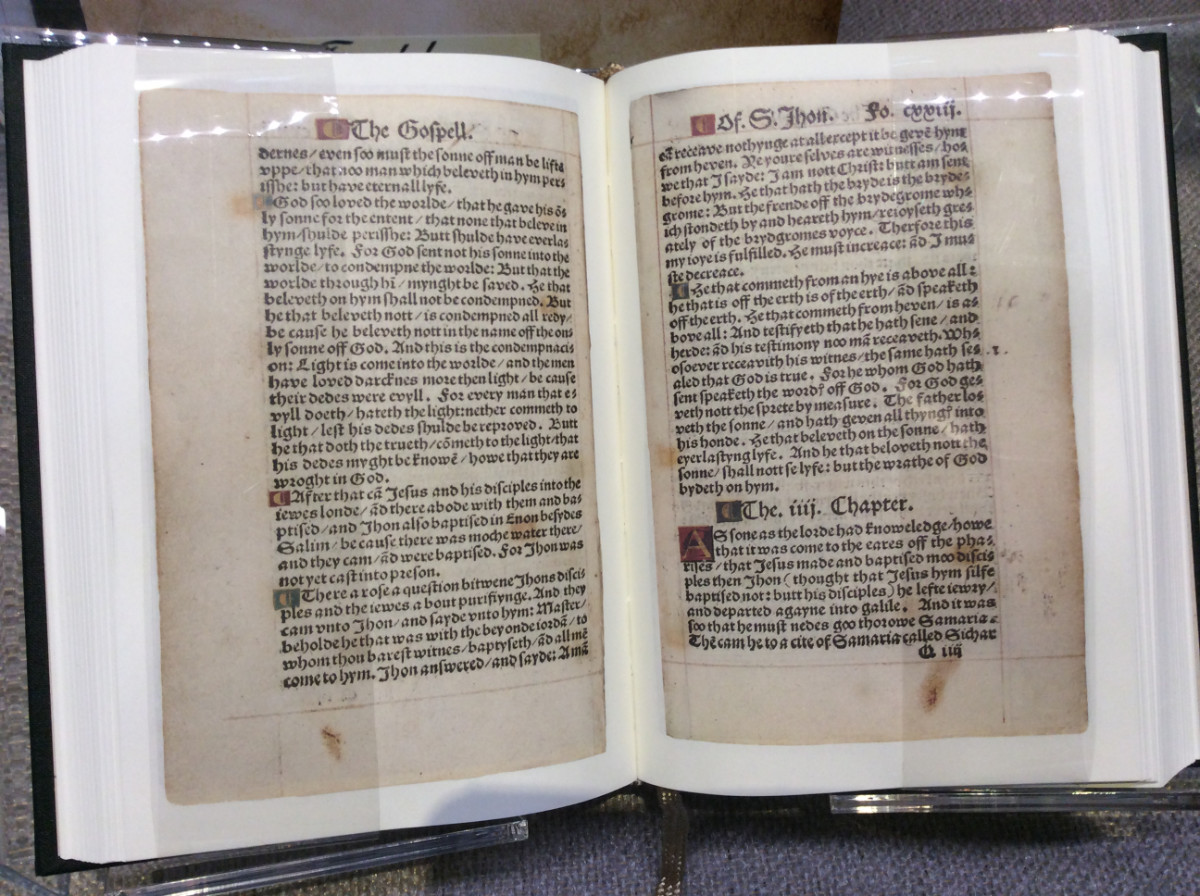 The Gospell.
dernes/even soo must the sonne off man be lifte
vppe/that noo man which beleveth in hym pers
isshe: but have eternall lyfe.
God soo loved the worlde/that he gave his ōs
ly sonne for the entent/that none that beleve in
hym/shulde perisshe: Butt shulde have everlas
stynge lyfe. For God sent not his sonne into the
worlde/to condempne the worlde: But that the
worlde through hī/mynght be saved. He that
beleveth on hym shall not be condempned. But
he that beleveth nott/is condempned all redy/
be cause he beleveth nott in the name off the ons
ly sonne off God. And this is the condempnacis
on: Light is come into the worlde/and the men
have loved darcknes more then light/be cause
their dedes were evyll. For every man that es
vyll doeth/hateth the light: nether commeth to
light/lest his dedes shulde be reproved. Butt
he that doth the trueth/cōmeth to the light/that
his dedes myght be knowē/howe that they are
wroght in God.
After that cā Jesus and his disciples into the
iewes londe/ād there abode with them and bas
ptised/and Jhon also baptised in Enon besydes
Salim/be cause there was moche water there/
and they cam/ād were baptised. For Jhon was
not yet cast into preson.
There a rose a question bitwene Jhons disci-
ples and the iewes a bout purifiynge. And they
cam vnto Jhon/and sayde vnto hym: Master/
beholde he that was with the beyonde iordā/to
whom thou barest witnes/baptyseth/ād all mē
come to hym. Jhon answered/and sayde: A mā
Of. S. Jhon. Fo. cxxiij.
cā receave nothynge at all except it be gevē hym
from heven. Ye youre selves are witnesses/hos
we that I sayde: I am nott Christ: butt am sent
before hym. He that hath the bryde is the bryde-
grome: But the frende off the brydegrome whs
ich stondeth by and heareth hym/reioyseth gres
ately of the brydgromes voyce. Therfore this
my ioye is fulfilled. He must increace: ād I mus
ste decreace.
He that commeth from an hye is above all:
he that is off the erth is of the erth/ād speaketh
off the erth. He that commeth from heven/is as
bove all: And testifyeth that he hath sene/and
herde: ād his testimony noo mā receaveth. Whs
osoever receavith his witnes/the same hath ses
aled that God is true. For he whom God hath
sent speaketh the wordꝭ off God. For God ges
veth nott the sprete by measure. The father los
veth the sonne/and hath geven all thyngꝭ into
his honde. He that beleveth on the sonne/hath
everlastyng lyfe. And he that beloveth nott the
sonne/shall nott se lyfe: but the wrathe of God
bydeth on hym.
The. iiij. Chapter.
AS sone as the lorde had knoweledge/howe
that it was come to the eares off the pha-
rises/that Jesus made and baptised moo discis
ples then Jhon (thought that Jesus hym silfe
baptised not: butt his disciples) he lefte iewry/
and departed agayne into galile. And it was
soo that he must nedes goo thorowe Samaria.
Thē cam he to a cite of Samaria called Sichar
Q iiij